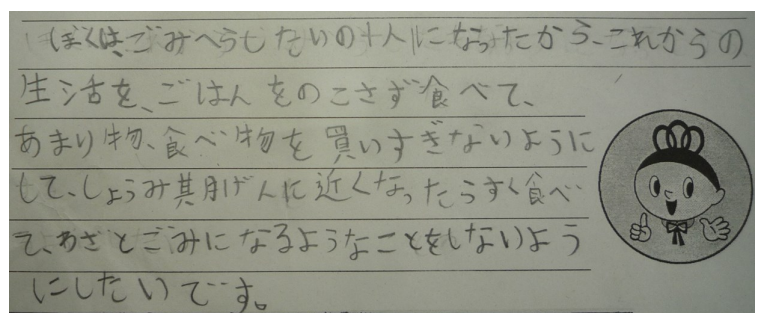 ぼくは、ごみへらしたいの十人になったから、これからの
生活を、ごはんをのこさず食べて、
あまり物、食べ物を買いすぎないように
して、しょうみ期げんに近くなったらすぐ食べ
て、わざとごみになるようなことをしないよう
にしたいです。